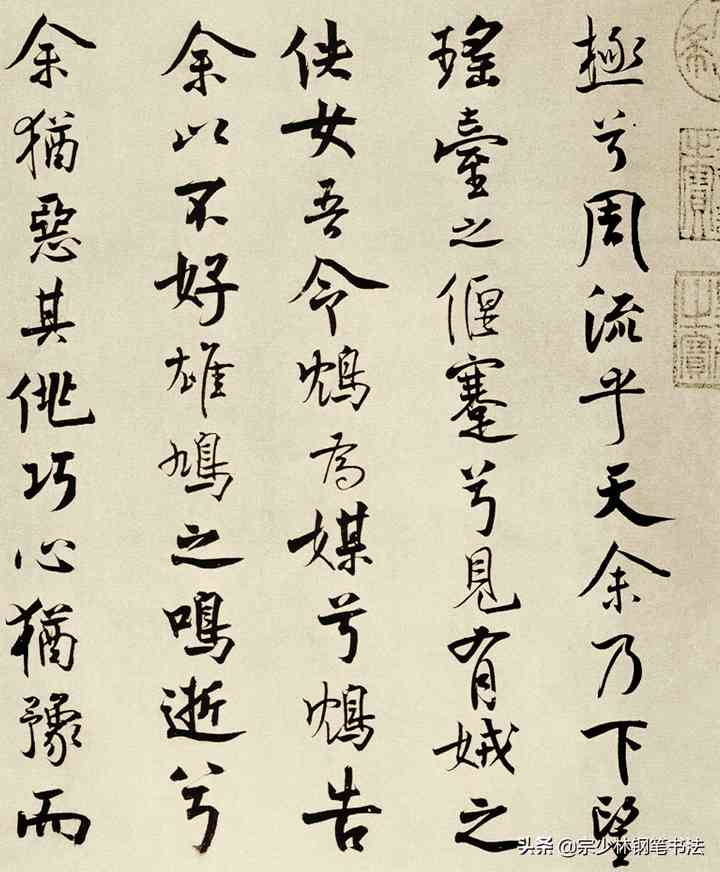 極兮周流乎天余乃下望
瑤臺之偃蹇兮見有娀之
佚女吾令鴆為媒兮鴆告
余以不好雄鳩之鳴逝兮
余猶惡其佻巧心猶豫而
头条 @宗少林钢笔书法